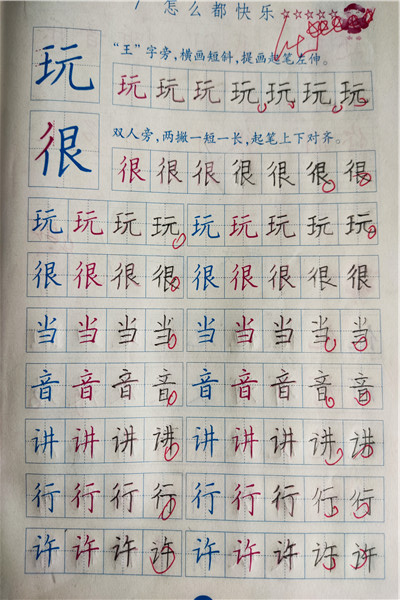 怎么都快乐
玩
“王”字旁，横画短斜，提画起笔左伸。
玩玩玩玩玩玩玩
很
双人旁，两撇一短一长，起笔上下对齐。
很很很很很很很
玩玩玩玩玩玩玩玩玩
很很很很很很很很很
当当当当当当当当当
音音音音音音音音音
讲讲讲讲讲讲讲讲讲
行行行行行行行行行
许许许许许许许许许